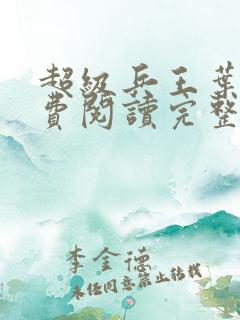 超级兵王葉
費閱讀完整
李金德
未经同意禁止转载